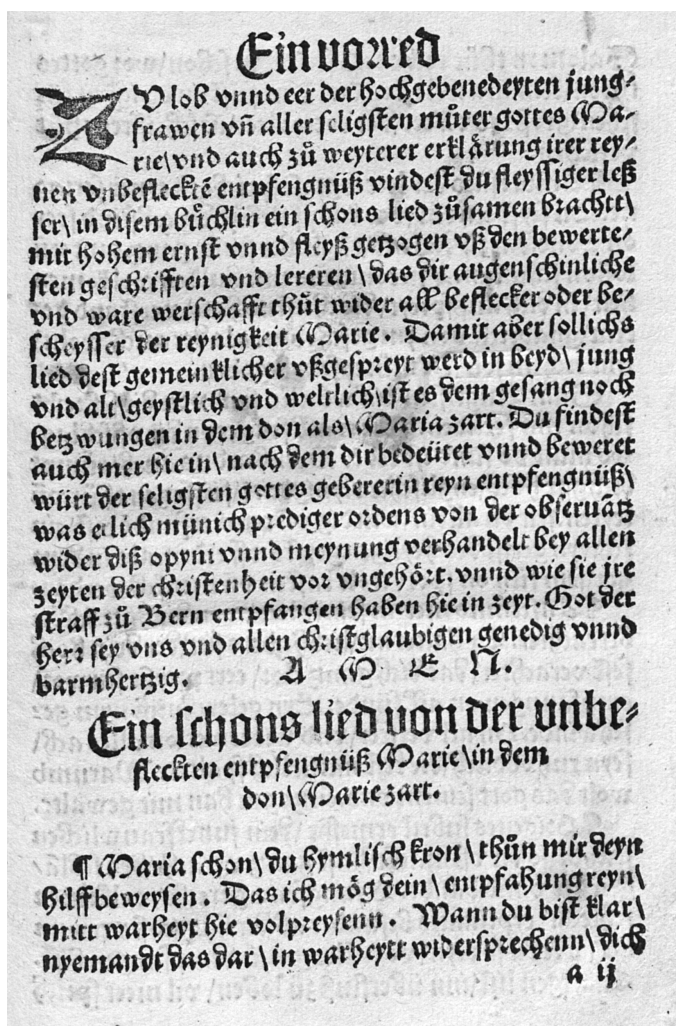 Ein vorred
ZU lob vnnd eer der hochgebenedeyten jung-
frawen vñ aller seligsten můter gottes Ma-
rie\vnd auch zů weyterer erklärung irer rey-
nen vnbeflecktē entpfengnüß vindest du fleyssiger leß
ser\ in disem bůchlin ein schons lied zůsamen brachtt\
mit hohem ernst vnnd fleyß getzogen vß den bewerte-
sten geschrifften vnd lereren\ das dir augenschinliche
vnd ware werschafft thůt wider all beflecker oder be-
scheysser der reynigkeit Marie. Damit aber sollichs
lied dest gemeinklicher vßgespreyt werd in beyd\ jung
vnd alt\geystlich vnd weltlich\ist es dem gesang noch
betzwungen in dem don als\ Maria zart. Du findest
auch mer hie in\ nach dem dir bedeütet vnnd beweret
würt der seligsten gottes gebererin reyn entpfengnüß\
was etlich münich prediger ordens von der obseruātz
wider diß opyni vnnd meynung verhandelt bey allen
zeyten der christenheit vor vngehört. vnnd wie sie jre
straff zů Bern entpfangen haben hie in zeyt. Got der
herr sey vns vnd allen christglaubigen genedig vnnd
barmhertzig. A M E N.
Ein schons lied von der vnbe-
fleckten entpfengnüß Marie\in dem
don\Marie zart.
¶ Maria schon\ du hymlisch kron\ thůn mir deyn
hilff beweysen. Das ich mög dein\ entpfahung reyn\
mitt warheyt hie volpreysenn. Wann du bist klar\
nyemandt das dar\ in warheytt widersprechenn\ dich
a ij